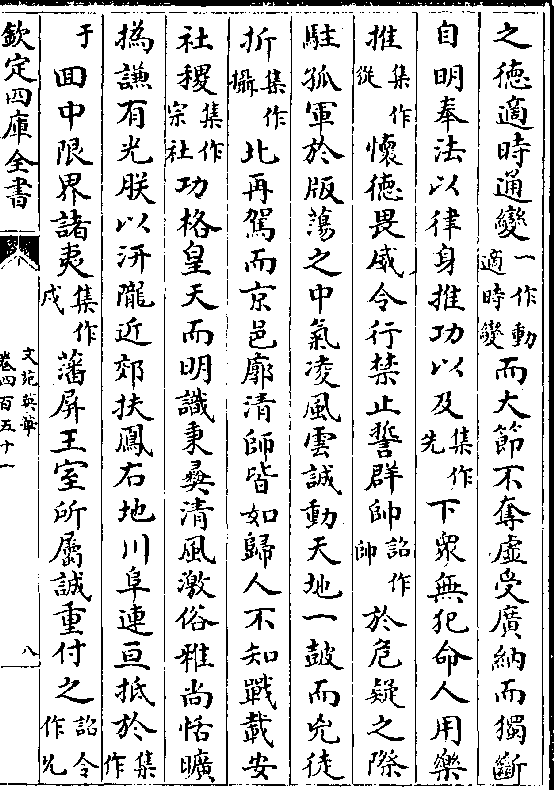 之德適時通變一作動適時變而大節不奪虛受廣納而獨斷
自明奉法以律身推功以及集作先下衆無犯命人用樂
推集作從懷德畏威令行禁止誓群帥詔作帥於危疑之際
駐孤軍於版蕩之中氣凌風雲誠動天地一鼓而兇徒
折集作攝北再駕而京邑廓清師皆如歸人不知戰載安
社稷集作宗社功格皇天而明識秉彜清風激俗雅尚恬曠
撝謙有光朕以汧隴近郊扶鳳右地川阜連亘抵於集作
于回中限界諸夷集作戎藩屏王室所屬誠重付之詔令作允
欽定四庫全書
文苑英華
卷四百五十一
八